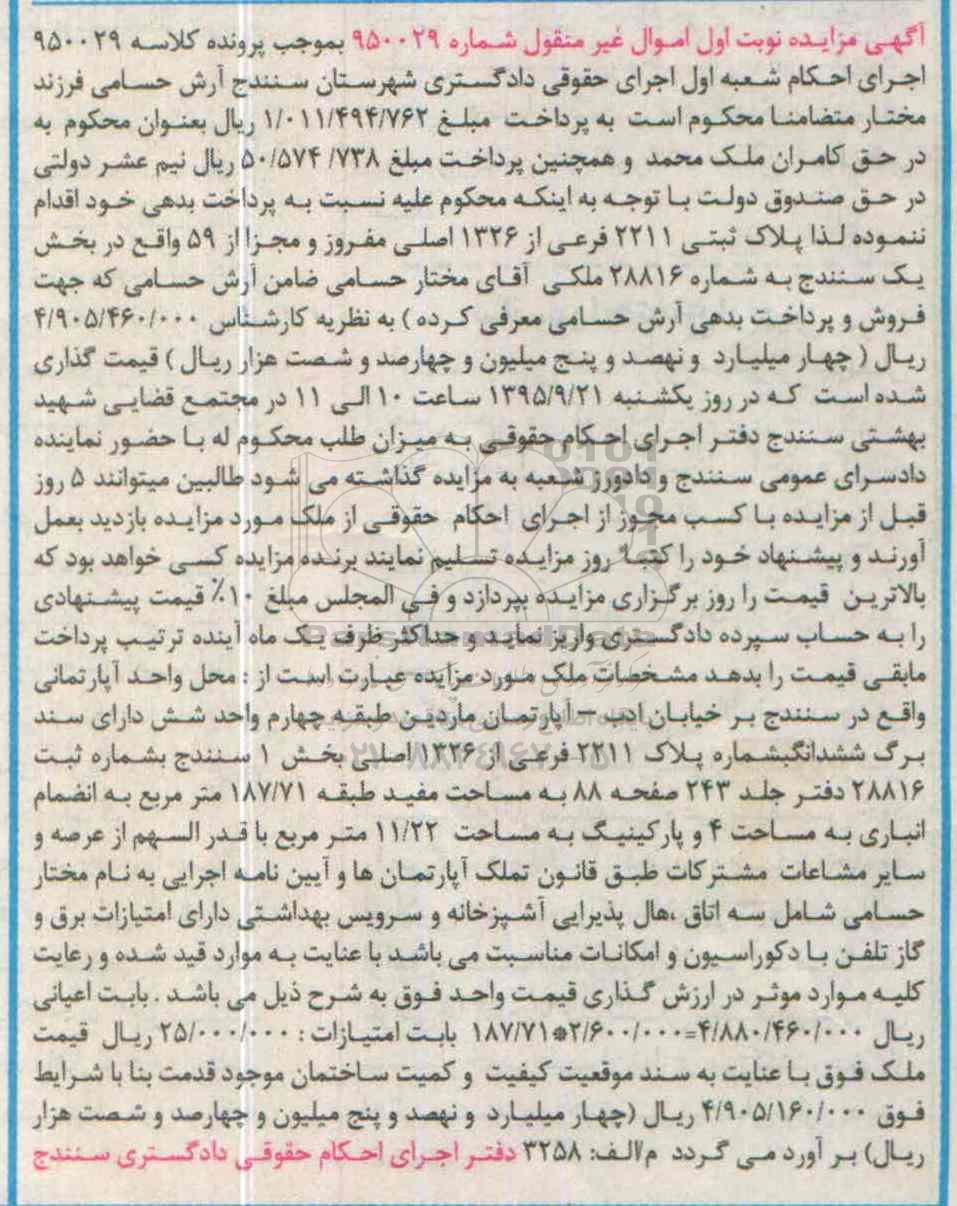 آگهی مزایده نوبت اول اموال غیر منقول شماره ۹۵۰۰۲۹ بموجب پرونده کلاسه ۹۵۰۰۲۹
اجرای احکام شعبه اول اجرای حقوقی دادگستری شهرستان سنندج آرش حسامی فرزند
مختار متضامنا محکوم است به پرداخت مبلغ ۱/۰۱۱/۴۹۴/۷۶۲ ریال بعنوان محکوم به
در حق کامران ملک محمد و همچنین پرداخت مبلغ ۵۰/۵۷۴ /۷۳۸ ریال نیم عشر دولتی
در حق صندوق دولت با توجه به اینکه محکوم علیه نسبت به پرداخت بدهی خود اقدام
ننموده لذا پلاک ثبتی ۲۲۱۱ فرعی از ۱۳۲۶ اصلی مفروز و مجزا از ۵۹ واقع در بخش
یک سنندج به شماره ۲۸۸۱۶ ملکی آقای مختار حسامی ضامن آرش حسامی که جهت
فروش و پرداخت بدهی آرش حسامی معرفی کرده ) به نظریه کارشناس ۴/۹۰۵/۴۶۰/۰۰۰
ریال ( چهار میلیارد و نهصد و پنج میلیون و چهارصد و شصت هزار ریال ) قیمت گذاری
شده است که در روز یکشنبه ۱۳۹۵/۹/۲۱ ساعت ۱۰ الی ۱۱ در مجتمع قضایی شهید
بهشتی سنندج دفتر اجرای احکام حقوقی به میزان طلب محکوم له با حضور نماینده
دادسرای عمومی سنندج و دادورز شعبه به مزایده گذاشته می شود طالبین میتوانند ۵ روز
قبل از مزایده با کسب مجوز از اجرای احکام حقوقی از ملک مورد مزایده بازدید بعمل
آورند و پیشنهاد خود را کتبا" روز مزایده تسلیم نمایند برنده مزایده کسی خواهد بود که
بالاترین قیمت را روز برگزاری مزایده بپردازد و فی المجلس مبلغ ۱۰٪ قیمت پیشنهادی
را به حساب سپرده دادگستری واریز نماید و حداکثر ظرف یک ماه آینده ترتیب پرداخت
مابقی قیمت را بدهد مشخصات ملک مورد مزایده عبارت است از : محل واحد آپارتمانی
واقع در سنندج بر خیابان ادب – آپارتمان ماردین طبقه چهارم واحد شش دارای سند
برگ ششدانگبشماره پلاک ۲۲۱۱ فرعی از ۱۳۲۶ اصلی بخش ۱ سنندج بشماره ثبت
۲۸۸۱۶ دفتر جلد ۲۴۳ صفحه ۸۸ به مساحت مفید طبقه ۱۸۷/۷۱ متر مربع به انضمام
انباری به مساحت ۴ و پارکینیگ به مساحت ۱۱/۲۲ متر مربع با قدر السهم از عرصه و
سایر مشاعات مشترکات طبق قانون تملک آپارتمان ها و آیین نامه اجرایی به نام مختار
حسامی شامل سه اتاق ،هال پذیرایی آشپزخانه و سرویس بهداشتی دارای امتیازات برق و
گاز تلفن با دکوراسیون و امکانات مناسبت می باشد با عنایت به موارد قید شده و رعایت
کلیه موارد موثر در ارزش گذاری قیمت واحد فوق به شرح ذیل می باشد . بابت اعیانی
ریال ۴/۸۸۰/۴۶۰/۰۰۰=۲/۶۰۰/۰۰۰*۱۸۷/۷۱ بابت امتیازات : ۲۵/۰۰۰/۰۰۰ ریال قیمت
ملک فوق با عنایت به سند موقعیت کیفیت و کمیت ساختمان موجود قدمت بنا با شرایط
فوق ۴/۹۰۵/۱۶۰/۰۰۰ ریال (چهار میلیارد و نهصد و پنج میلیون و چهارصد و شصت هزار
ریال) بر آورد می گردد م/الف: ۳۲۵۸ دفتر اجرای احکام حقوقی دادگستری سنندج